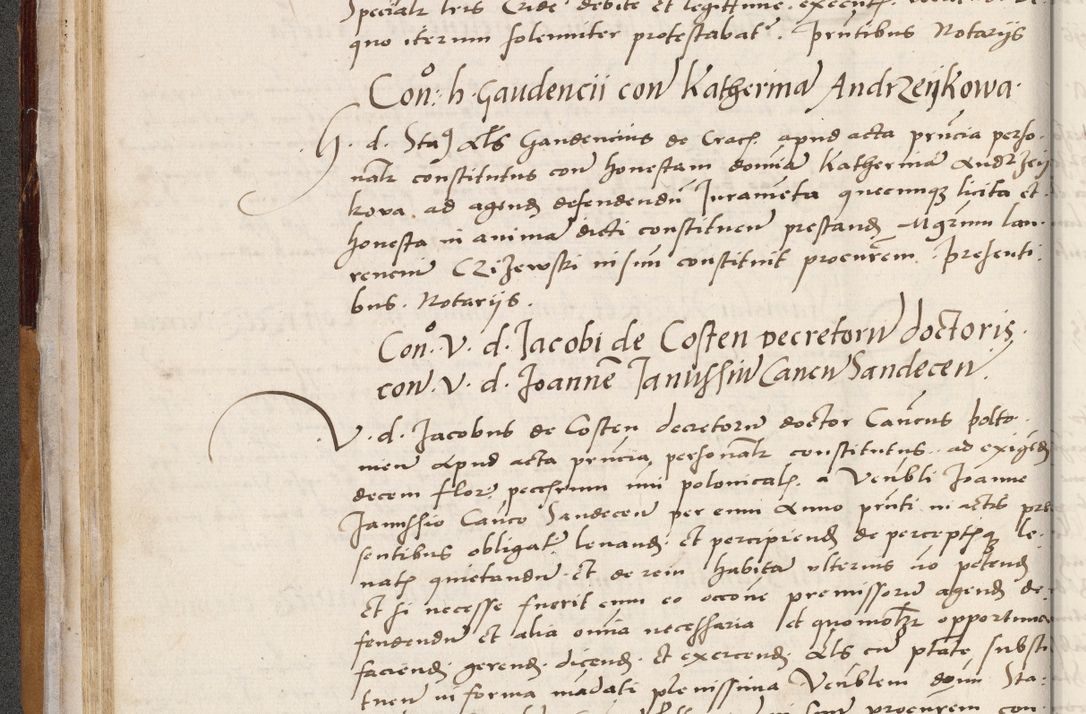 quo iterum solenniter protestabat. prntibus Notarijs
Con: h. Gaudencii con Katherina Andrzeijkowa.
H. d. Sta. als Gaudencius de Crac. apud acta prncia perso.
nalr constitutus con honestam domina Katherina Andrzeij
kova ad agend defendendu Juramenta quecunq licita et
honesta in anima dicti constituen prestand Mgrum Lau.
rencin Czijzewski in sun constituit procurem. presenti.
bus. Notarijs.
Con. V. d. Jacobi de Costen Decretoru doctoris.
con. V. d. Joannem Janussiu Cancu Sandecen.
V. d. Jacobus de Costen decretoru doctor Cancus polto.
nien apud acta prncia personalr constitutus. ad exigend
decem flor. pecc numi polonicalr. a Venbli Joanne
Janussio Canco Sandecen per eum Anno prnti in actis pre
sentibus obligat. levand. et percipiend de perceptisq le.
vatis quietandu. et de rein habita ulterius no petend
et si necesse fuerit eum eo occone premissoru agend de
fendendu et alia omia necessaria et quomolr opportuna
faciend. gerend. dicend. et exercend. als cu ptate substi
tuen in forma mandati plenissima Venblem domi Sta-